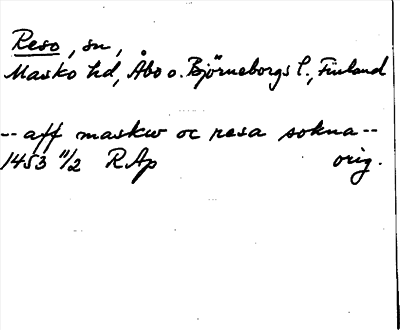 Reso, sn,
Masko hd, Åbo o. Björneborgs l., Finland
-- aff maskw oc resa sokna --
1453 11/2 RAp orig.